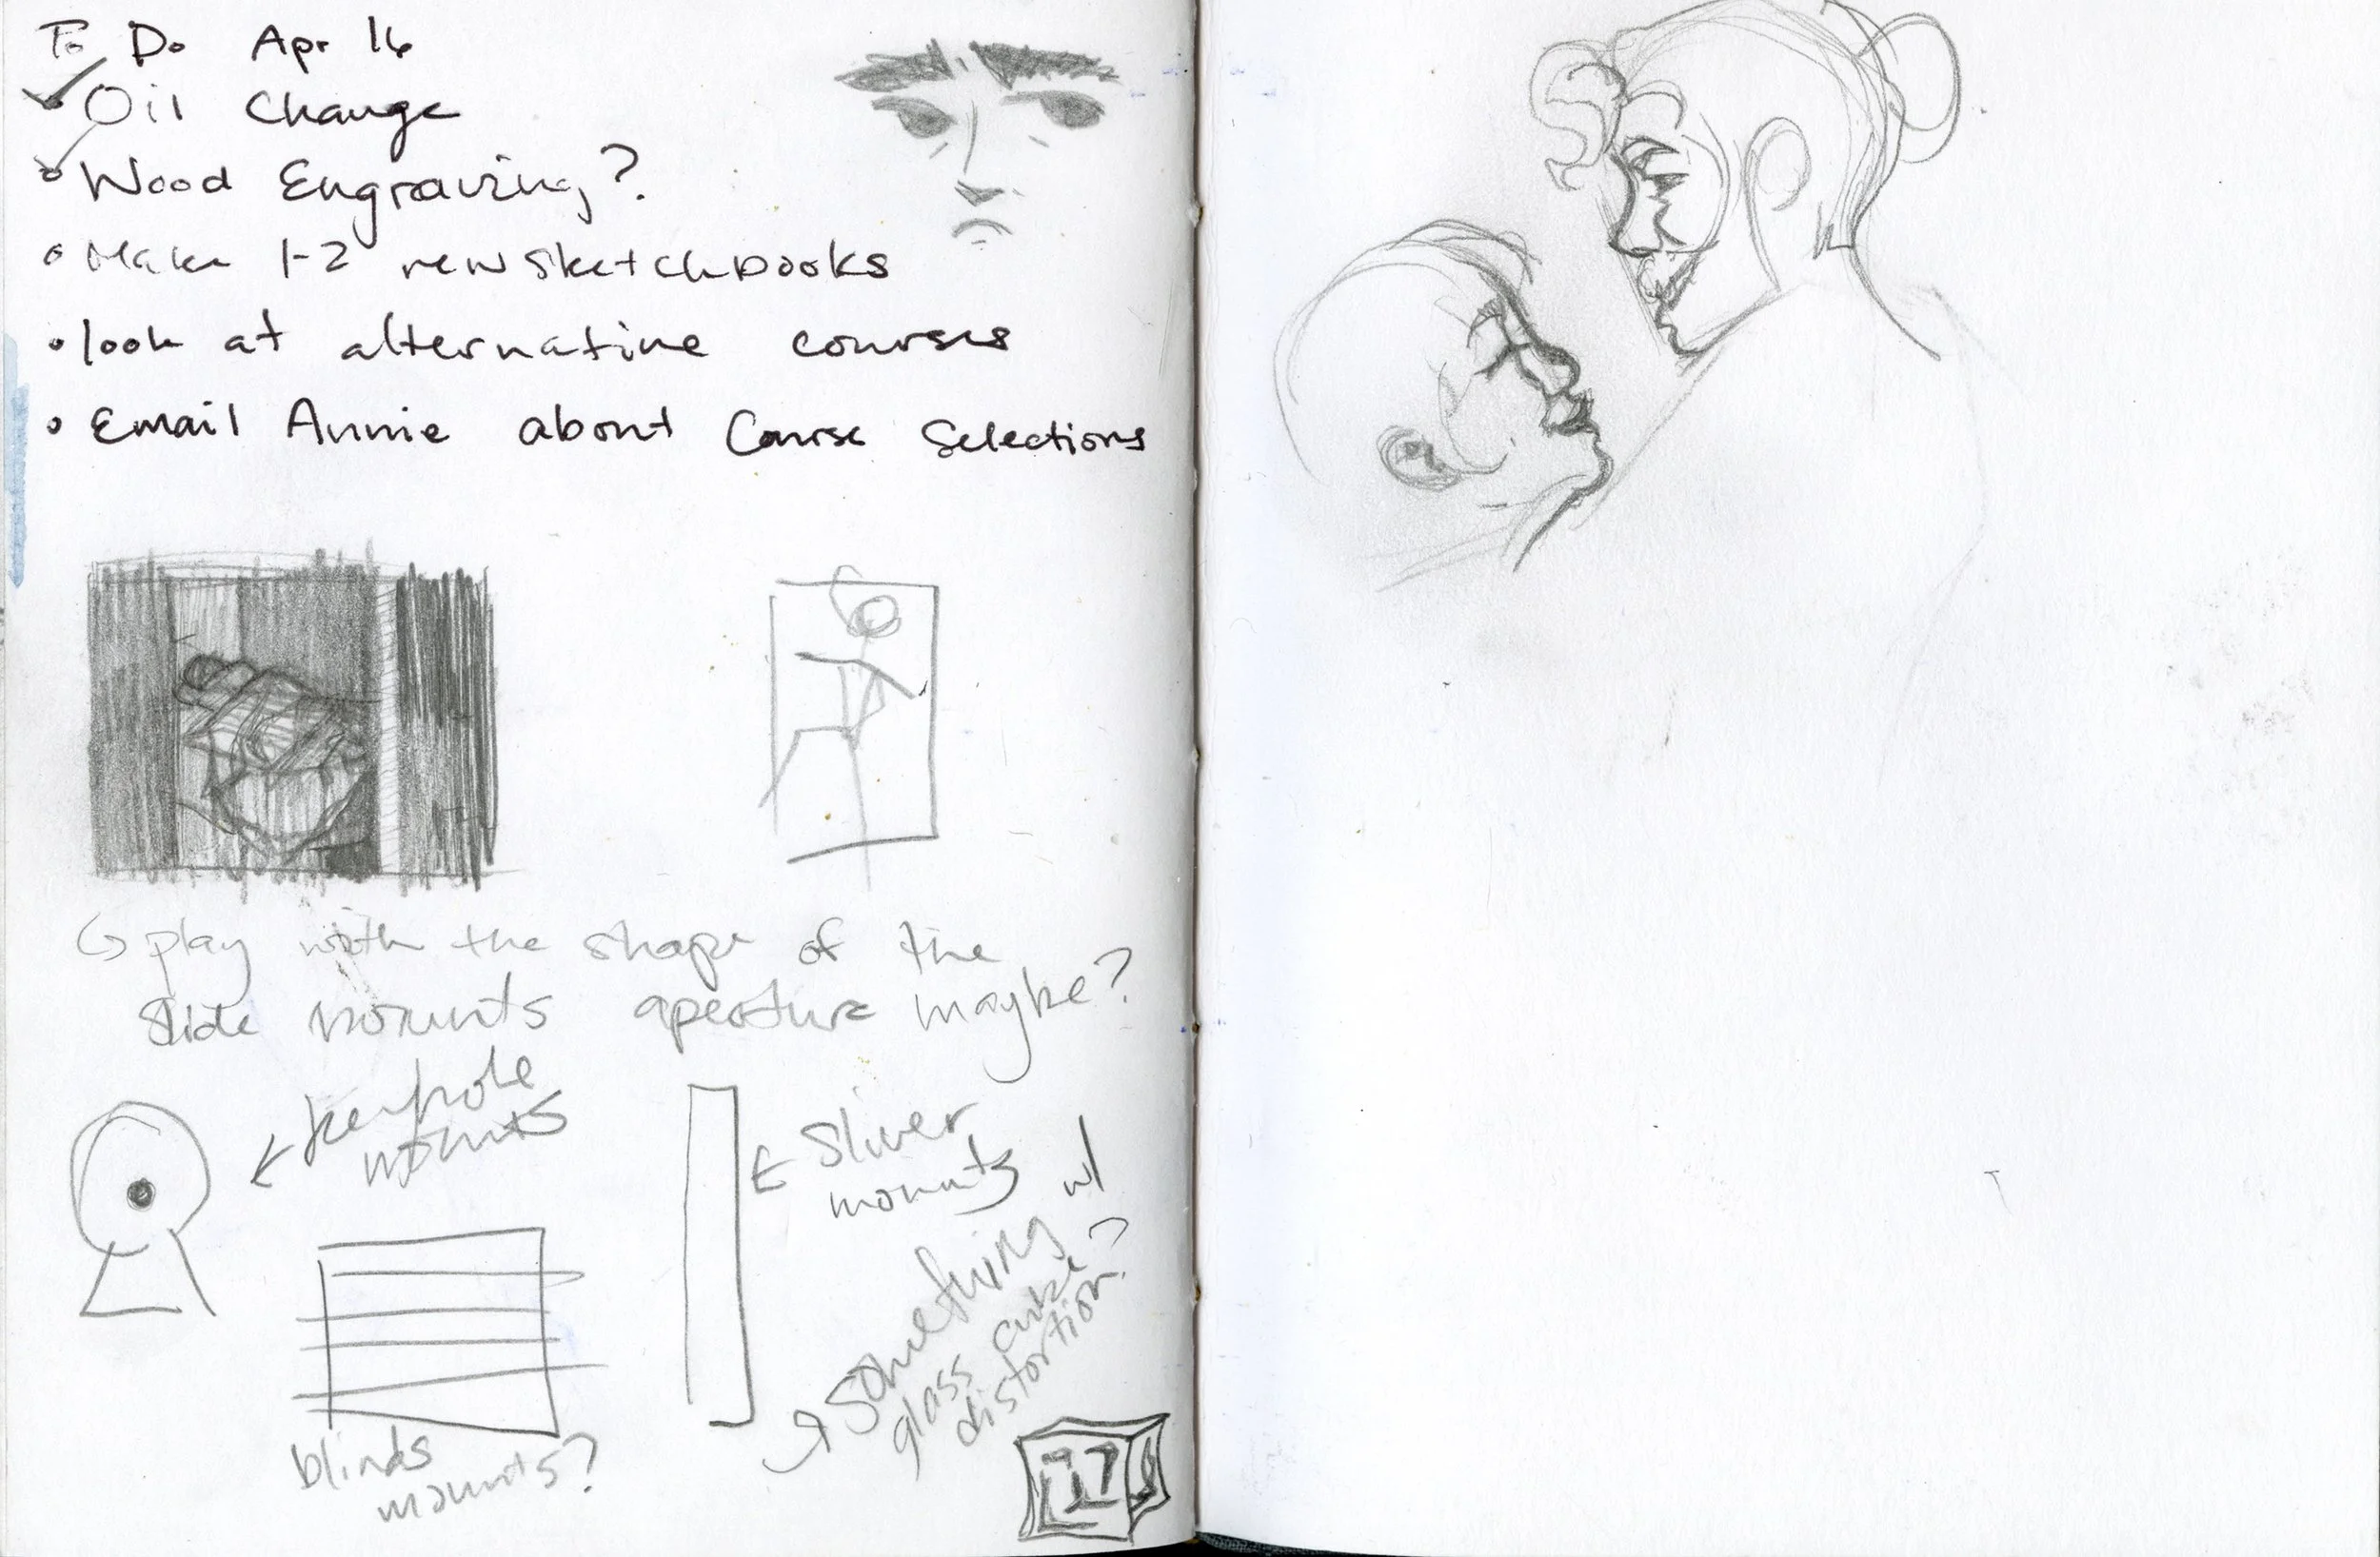 To Do Apr 16
Oil Change
Wood Engraving?
Make 1-2 new sketchbooks
look at alternative courses
Email Annie about Course Selections
play with the shape of the
slide mounts aperture maybe?
keyhole
mounts
Sliver
mounts
something w/
glass cube?
distortion?
blinds
mounts?